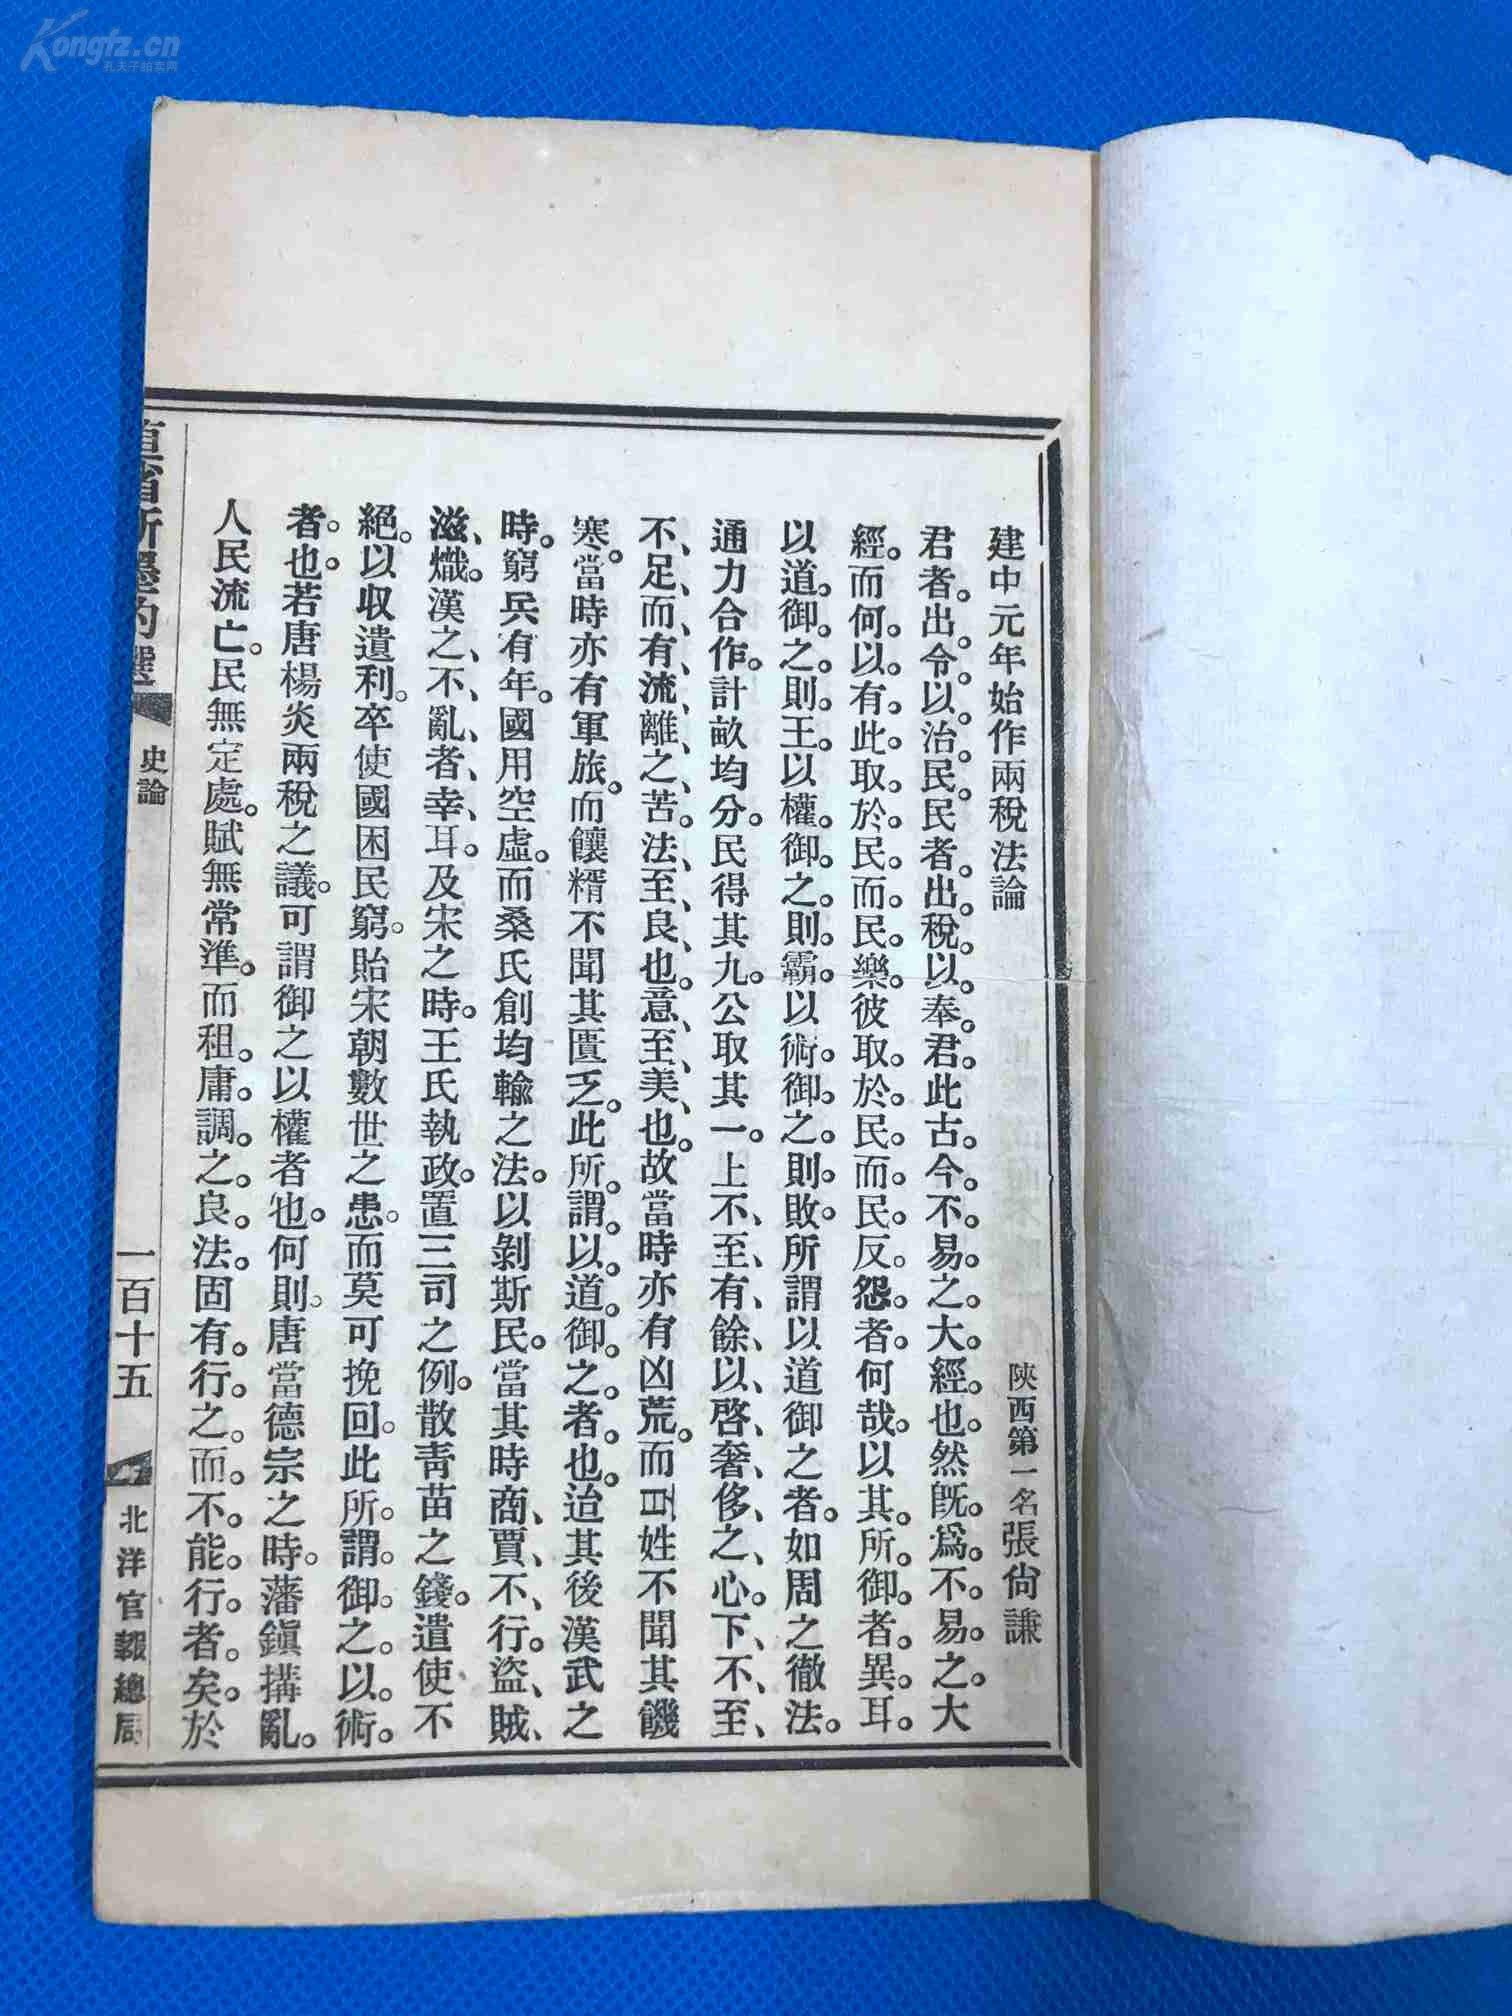 Kongfz.cn
孔夫子拍卖网
建中元年始作兩稅法論
陝西第一名張尙謙
君者。出。令。以。治。民。民者。出。稅。以。奉。君。此古。今。不。易。之。大。經。也。然旣。爲。不。易。之。大
經。而。何。以。有。此。取。於。民。而。民。樂。彼取。於。民。而。民。反。怨。者。何哉。以其。所。御。者。異。耳。
以道。御。之。則。王。以權。御。之。則。霸。以術。御。之。則。敗。所謂以道御之者。如周之徹法。
通力合作。計畝均分。民得其九。公取其一。上不、至、有、餘、以、啓、奢、侈、之、心。下、不、至、
不、足、而、有、流、離、之、苦。法、至、良、也。意、至、美、也。故當時亦有凶荒。而百姓不聞其饑
寒。當時亦有軍旅。而饟糈不聞其匱乏。此所。謂。以。道。御。之。者。也。迨其後漢武之
時。窮兵有年。國用空虛。而桑氏創均輸之法。以剝斯民。當其時商、賈、不、行。盜、賊、
滋、熾。漢之、不、亂、者、幸、耳。及宋之時。王氏執政。置三司之例。散靑苗之錢。遣使不
絕。以收遺利。卒使國困民窮。貽宋朝數世之患。而莫可挽回。此所。謂。御。之。以。術。
者。也。若唐楊炎兩稅之議。可謂御之以權者也。何則。唐當德宗之時。藩鎭搆亂。
人民流亡。民無定處。賦無常準。而租。庸。調。之。良。法。固有。行。之。而。不。能。行。者。矣。於
直省新墨約選
史論
一百十五
北洋官報總局